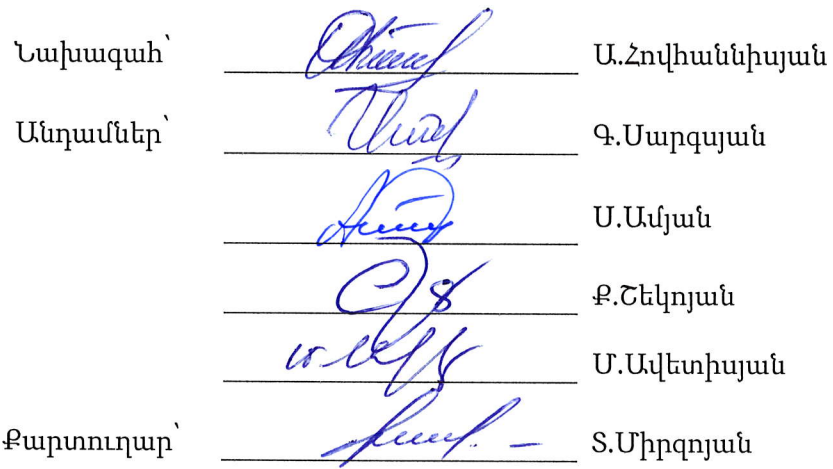 Նախագահ՝ Ա.Հովհաննիսյան
Անդամներ՝ Գ.Սարգսյան
Ս.Ամյան
Ք.Շեկոյան
Մ.Ավետիսյան
Քարտուղար՝ Տ.Միրզոյան